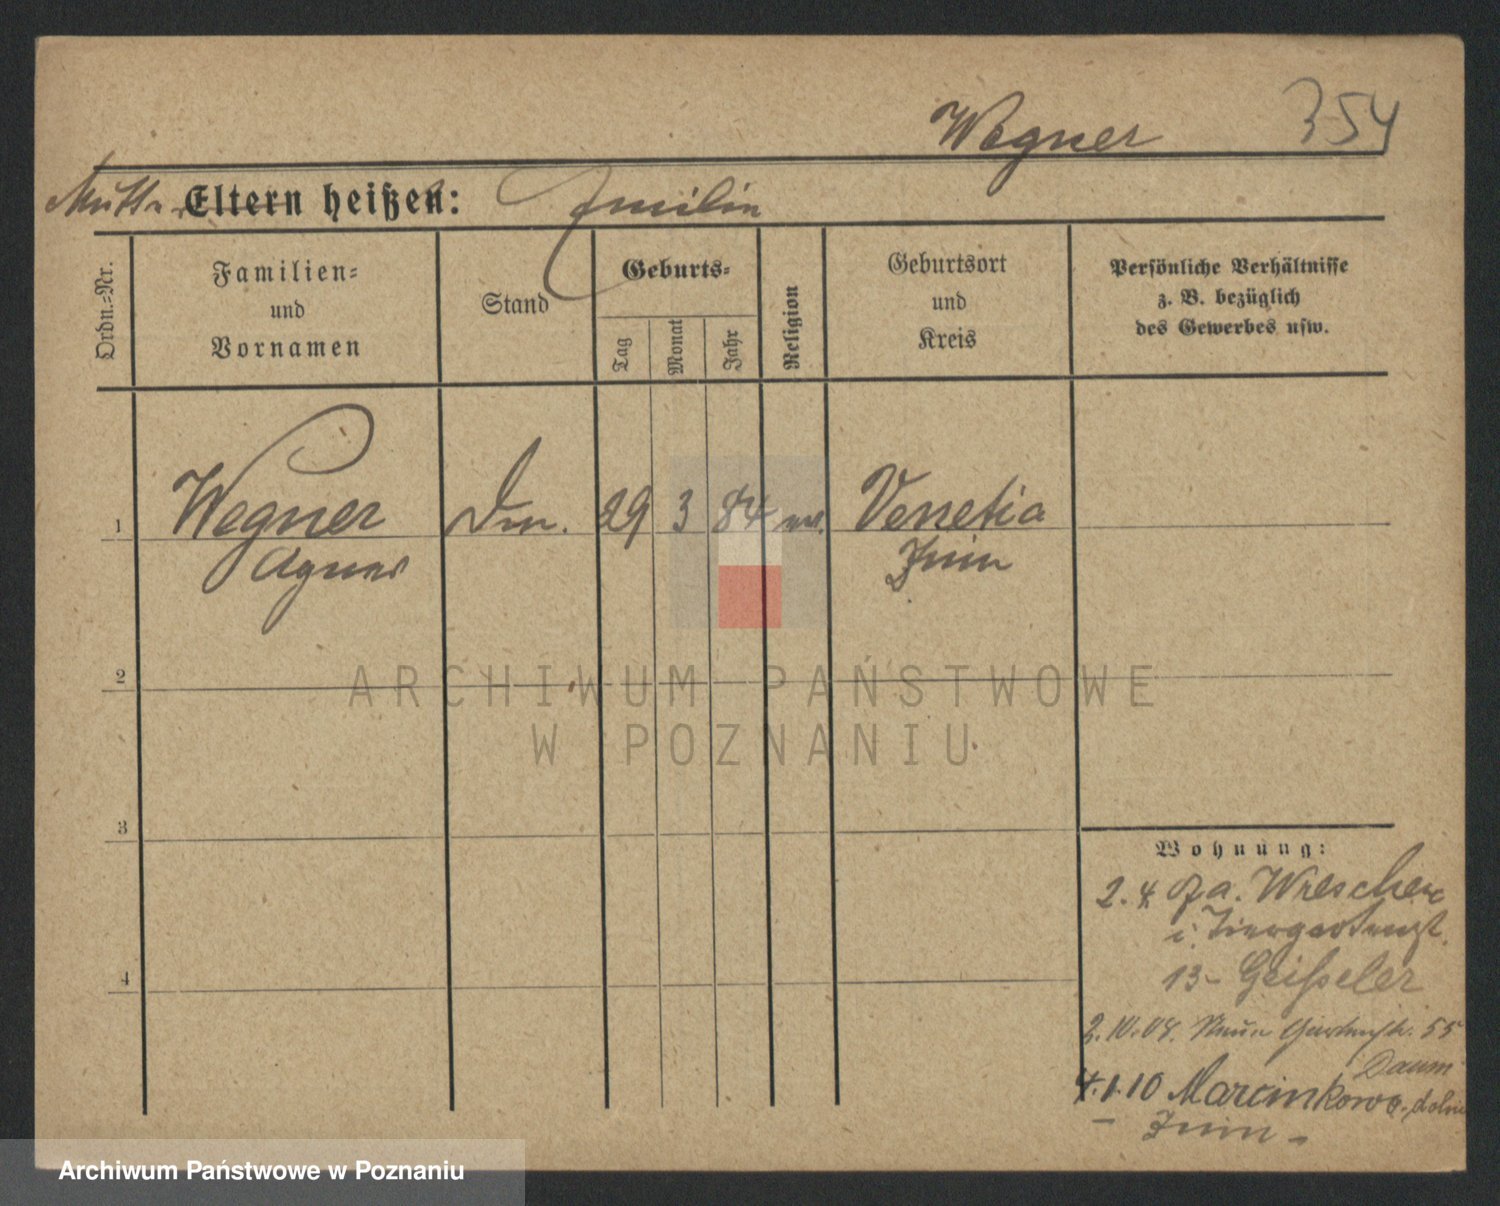 Wegner 354
Mutter Eltern heißen: Emilie
Ordn.=Nr.
Familien=
und
Vornamen
Stand
Geburts=
Tag
Monat
Jahr
Religion
Geburtsort
und
Kreis
Persönliche Verhältnisse
z. B. bezüglich
des Gewerbes usw.
1 Wegner 29 3 84 Venetia
Agnes Znin
2
3
4
ARCHIWUM PAŃSTWOWE
W POZNANIU
Wohnung:
2. 4. Wreschen
i. Tiergartenst.
13- Geißeler
2.10.04. Neue Gartenstr. 55
Daum
4.1.10 Marcinkowo-dolne
- Znin -
Archiwum Państwowe w Poznaniu